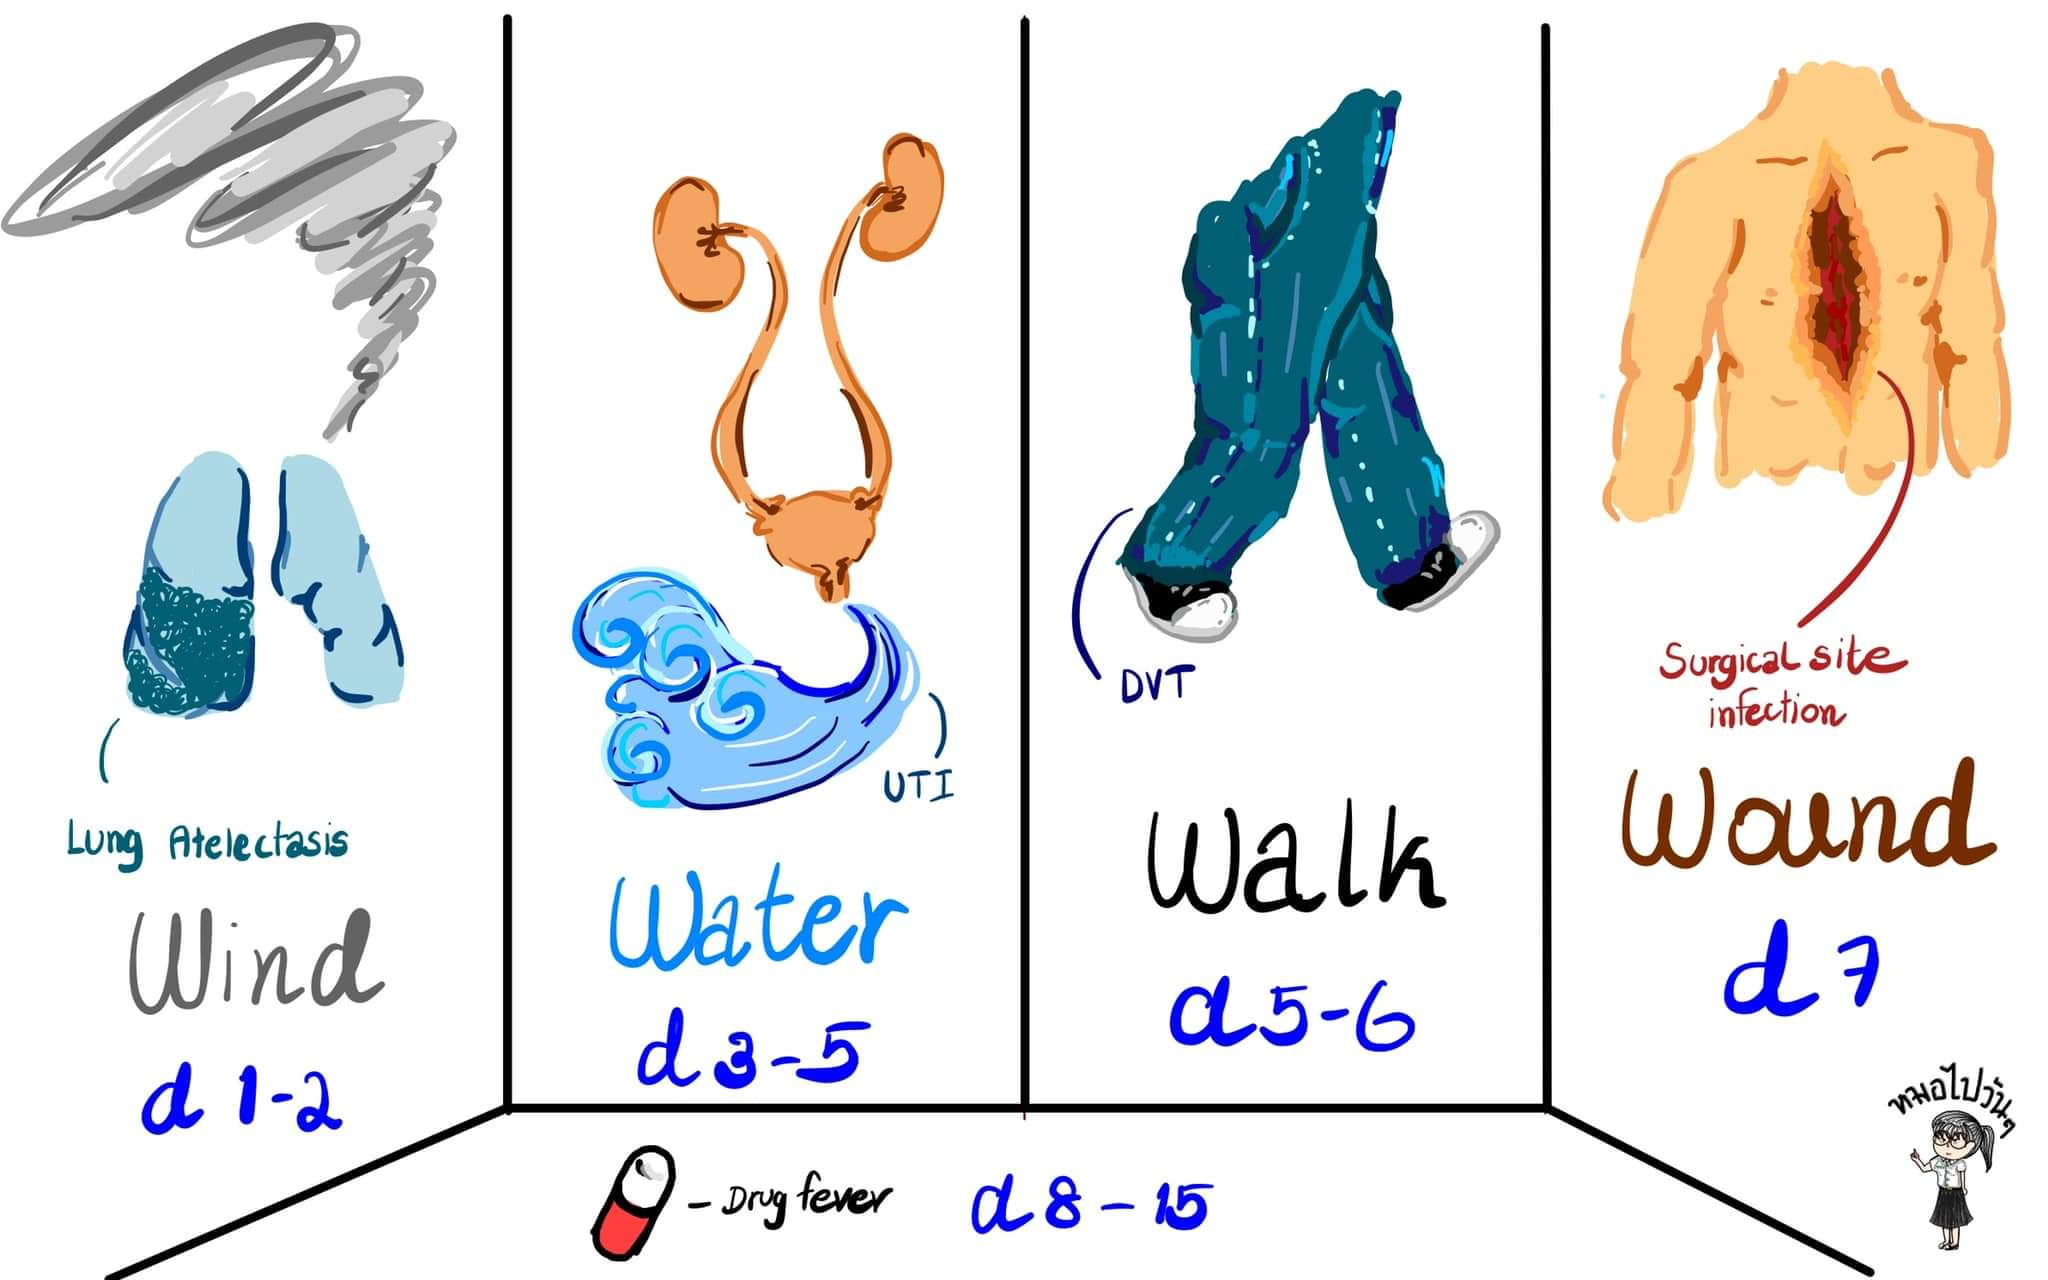 Lung Atelectasis
Wind
d 1-2
UTI
Water
d 3-5
DVT
Walk
d 5-6
Surgical site
infection
Wound
d 7
- Drug fever d 8-15
หมอไปวันๆ